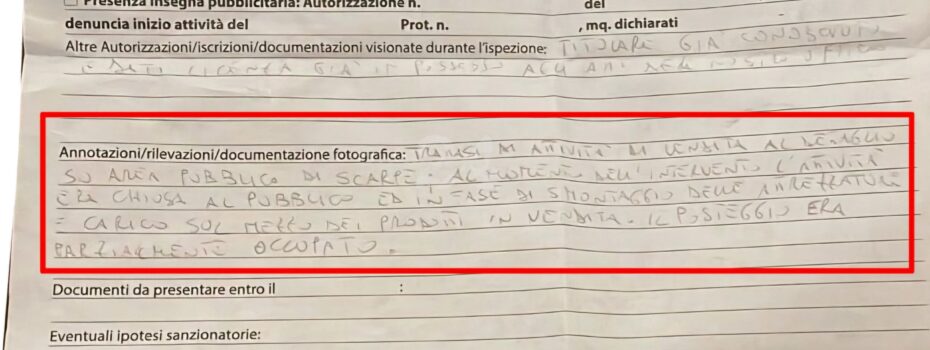 Presenza insegna pubblicitaria: Autorizzazione n. del
denuncia inizio attività del Prot. n. , mq. dichiarati
Altre Autorizzazioni/iscrizioni/documentazioni visionate durante l'ispezione: TITOLARE GIA' CONOSCIUTO
E DATI LICENZA GIA' IN POSSESSO AGLI ATTI DEL NOSTRO UFFICIO
Annotazioni/rilevazioni/documentazione fotografica: TRATTASI DI ATTIVITÀ DI VENDITA AL DETTAGLIO
SU AREA PUBBLICO DI SCARPE. AL MOMENTO DELL'INTERVENTO L'ATTIVITÀ
ERA CHIUSA AL PUBBLICO ED IN FASE DI SMONTAGGIO DELLE ATTREZZATURE
E CARICO SUL MEZZO DEI PRODOTTI IN VENDITA. IL POSTEGGIO ERA
PARZIALMENTE OCCUPATO.
Documenti da presentare entro il :
Eventuali ipotesi sanzionatorie: